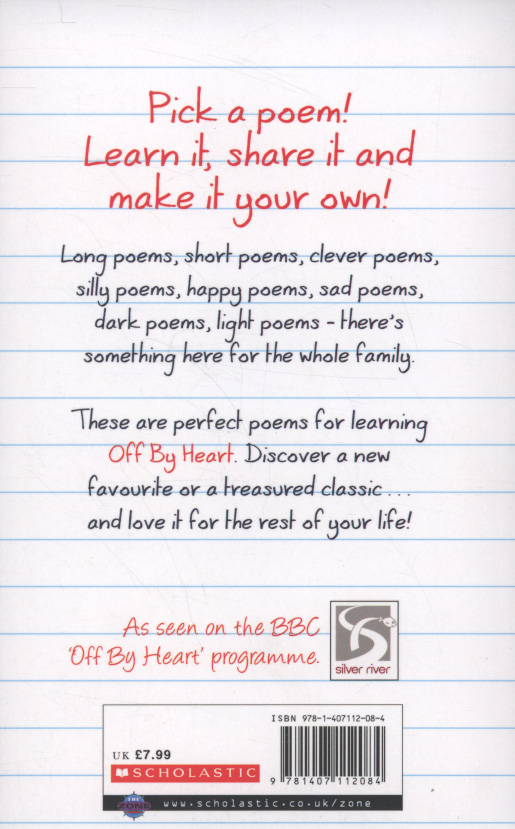 Pick a poem!
Learn it, share it and
make it your own!
Long poems, short poems, clever poems,
silly poems, happy poems, sad poems,
dark poems, light poems – there's
something here for the whole family.
These are perfect poems for learning
Off By Heart. Discover a new
favourite or a treasured classic . . .
and love it for the rest of your life!
As seen on the BBC
'Off By Heart' programme.
silver river
ISBN 978-1-407112-08-4
UK £7.99
SCHOLASTIC
9 781407 112084
THE
ZONE
www.scholastic.co.uk/zone